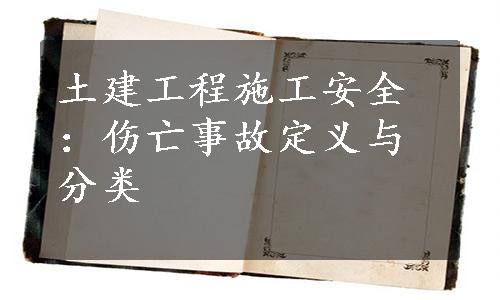 土建工程施工安全
：伤亡事故定义与
分类